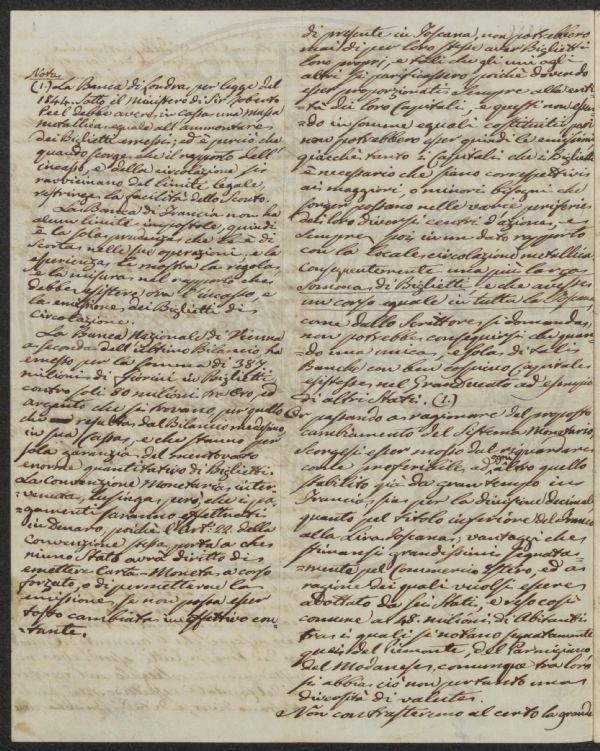 Nota
(1.) La Banca di Londra, per legge del
1844. sotto il Ministero di Sir Roberto
Peel debbe avere, in cassa una massa
metallica eguale all'ammontare
dei Biglietti emessi; ed è perciò che
quando scorge che il rapporto dell'
incasso, e della circolazione si
ravvicinano del limite legale,
restringe la facilità dello Sconto.
La Banca di Francia non ha
alcun limite impostole, quindi
è la sola prudenza che le è di
scorta nelle sue operazioni, e la
esperienza le mostra la regola,
e la misura nel rapporto che
debbe esistere, ora l'incasso, e
la emissione dei Biglietti di
circolazione.
La Banca Nazionale di Vienna
a seconda dell'ultimo Bilancio ha
emesso per la somma di 387.
milioni di fiorini in Biglietti
contro soli 80 milioni tra Oro, ed
argento che si trovano per quello
che resulta dal Bilancio medesimo
in sua Cassa, e che stanno per
sola garanzia del mentovato
enorme quantitativo di Biglietti.
La Convenzione Monetaria inter-
-venuta, lusinga, però, che i pa-
-gamenti saranno effettuati
in denaro, poichè l'Art: 22. della
Convenzione stessa porta a che
niuno Stato avrà diritto di
emettere Carta-Moneta a corso
forzato, o di permetterne la
emissione, se non possa esser
tosto cambiata in effettivo con-
-tante.
di presente in Toscana, non potrebbero
mai di per loro stesse aver Biglietti
loro proprj, e tali che gli uni agli
altri si parificassero poichè dovendo
esser proporzionati sempre alla enti-
-tà dei loro Capitali, e questi non essen-
-do in somme eguali costituiti, pari
non potrebbero esser quindi le emissioni
giacchè tanto i Capitali che i Biglietti
è necessario che siano correspettivi
ai maggiori, o minori bisogni che
sorger possano nelle varie periferie
dei loro diversi centri d'azione, e
sempre poi in un dato rapporto
con la locale circolazione metallica.
Conseguentemente una più larga
Somma di Biglietti, e che avesse
un corso eguale in tutta la Toscana,
come dallo Scrittore si domanda,
non potrebbe conseguirsi che quan-
-do una unica, e sola di tali
Banche con ben cospicuo Capitale
esistesse nel Granducato ad esempio
di altri Stati. (1.)
Or passando a ragionare del proposto
cambiamento del Sistema Monetario,
scorgesi esser mosso dal riguardare
come preferibile ad ogni altro quello
stabilito già da gran tempo in
Francia, sia per la divisione decimale
quanto pel titolo inferiore del Franco
alla Lira Toscana; vantaggi che
stimansi grandissimi segnata-
-mente pel commercio estero, ed a
ragione dei quali vuolsi essere
adottato da sei Stati, e reso così
comune a 48. milioni di Abitanti
tra i quali si notano segnatamente
quei del Piemonte, del Parmigiano
del Modanese, comunque tra loro
si abbia ciò non pertanto una
diversità di valute.
Non contrasteremo al certo la grande